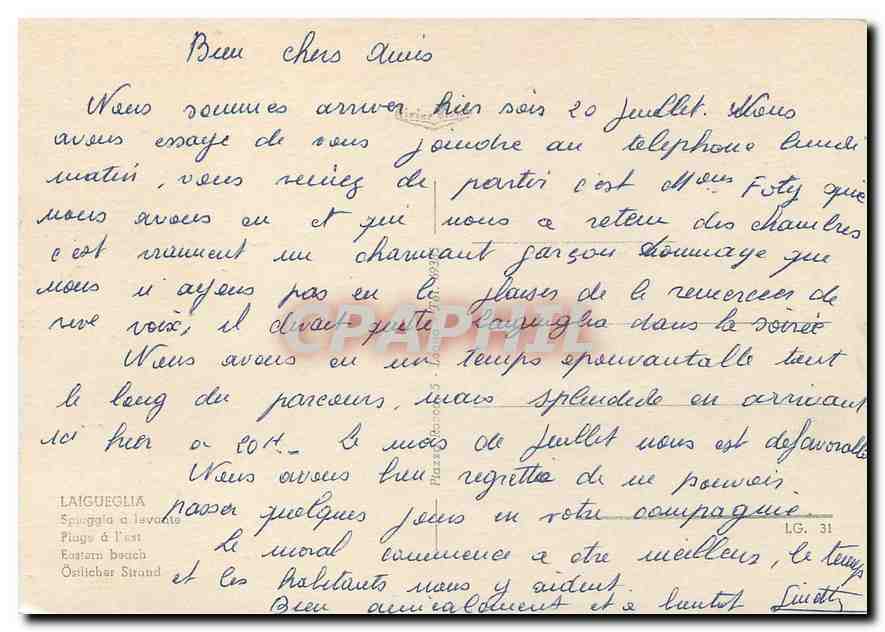 Bien chers Amis
Nous sommes arriver hier soir 20 Juillet. Nous
avons essaye de vous joindre au telephone lundi
matin, vous veniez de partir c'est Mons Foty que
nous avons eu et qui nous a retenu des chambres
c'est vraiment un charmant garçon dommage que
nous n'ayons pas eu le plaisir de le remercier de
vive voix, il devait quitte Laigueglia dans la soirée
Nous avons eu un temps epouvantable tout
le long du parcours, mais splendide en arrivant
ici hier a 20H. Le mois de Juillet nous est defavorable
Nous avons bien regretté de ne pouvoir
passer quelques jours en votre compagnie.
Le moral commence a etre meilleur, le temps
et les habitants nous y aident.
Bien amicalement et a bientot
LAIGUEGLIA
Spiaggia a levante
Plage á l'est
Eastern beach
Östlicher Strand
LG. 31
CPAPHIL